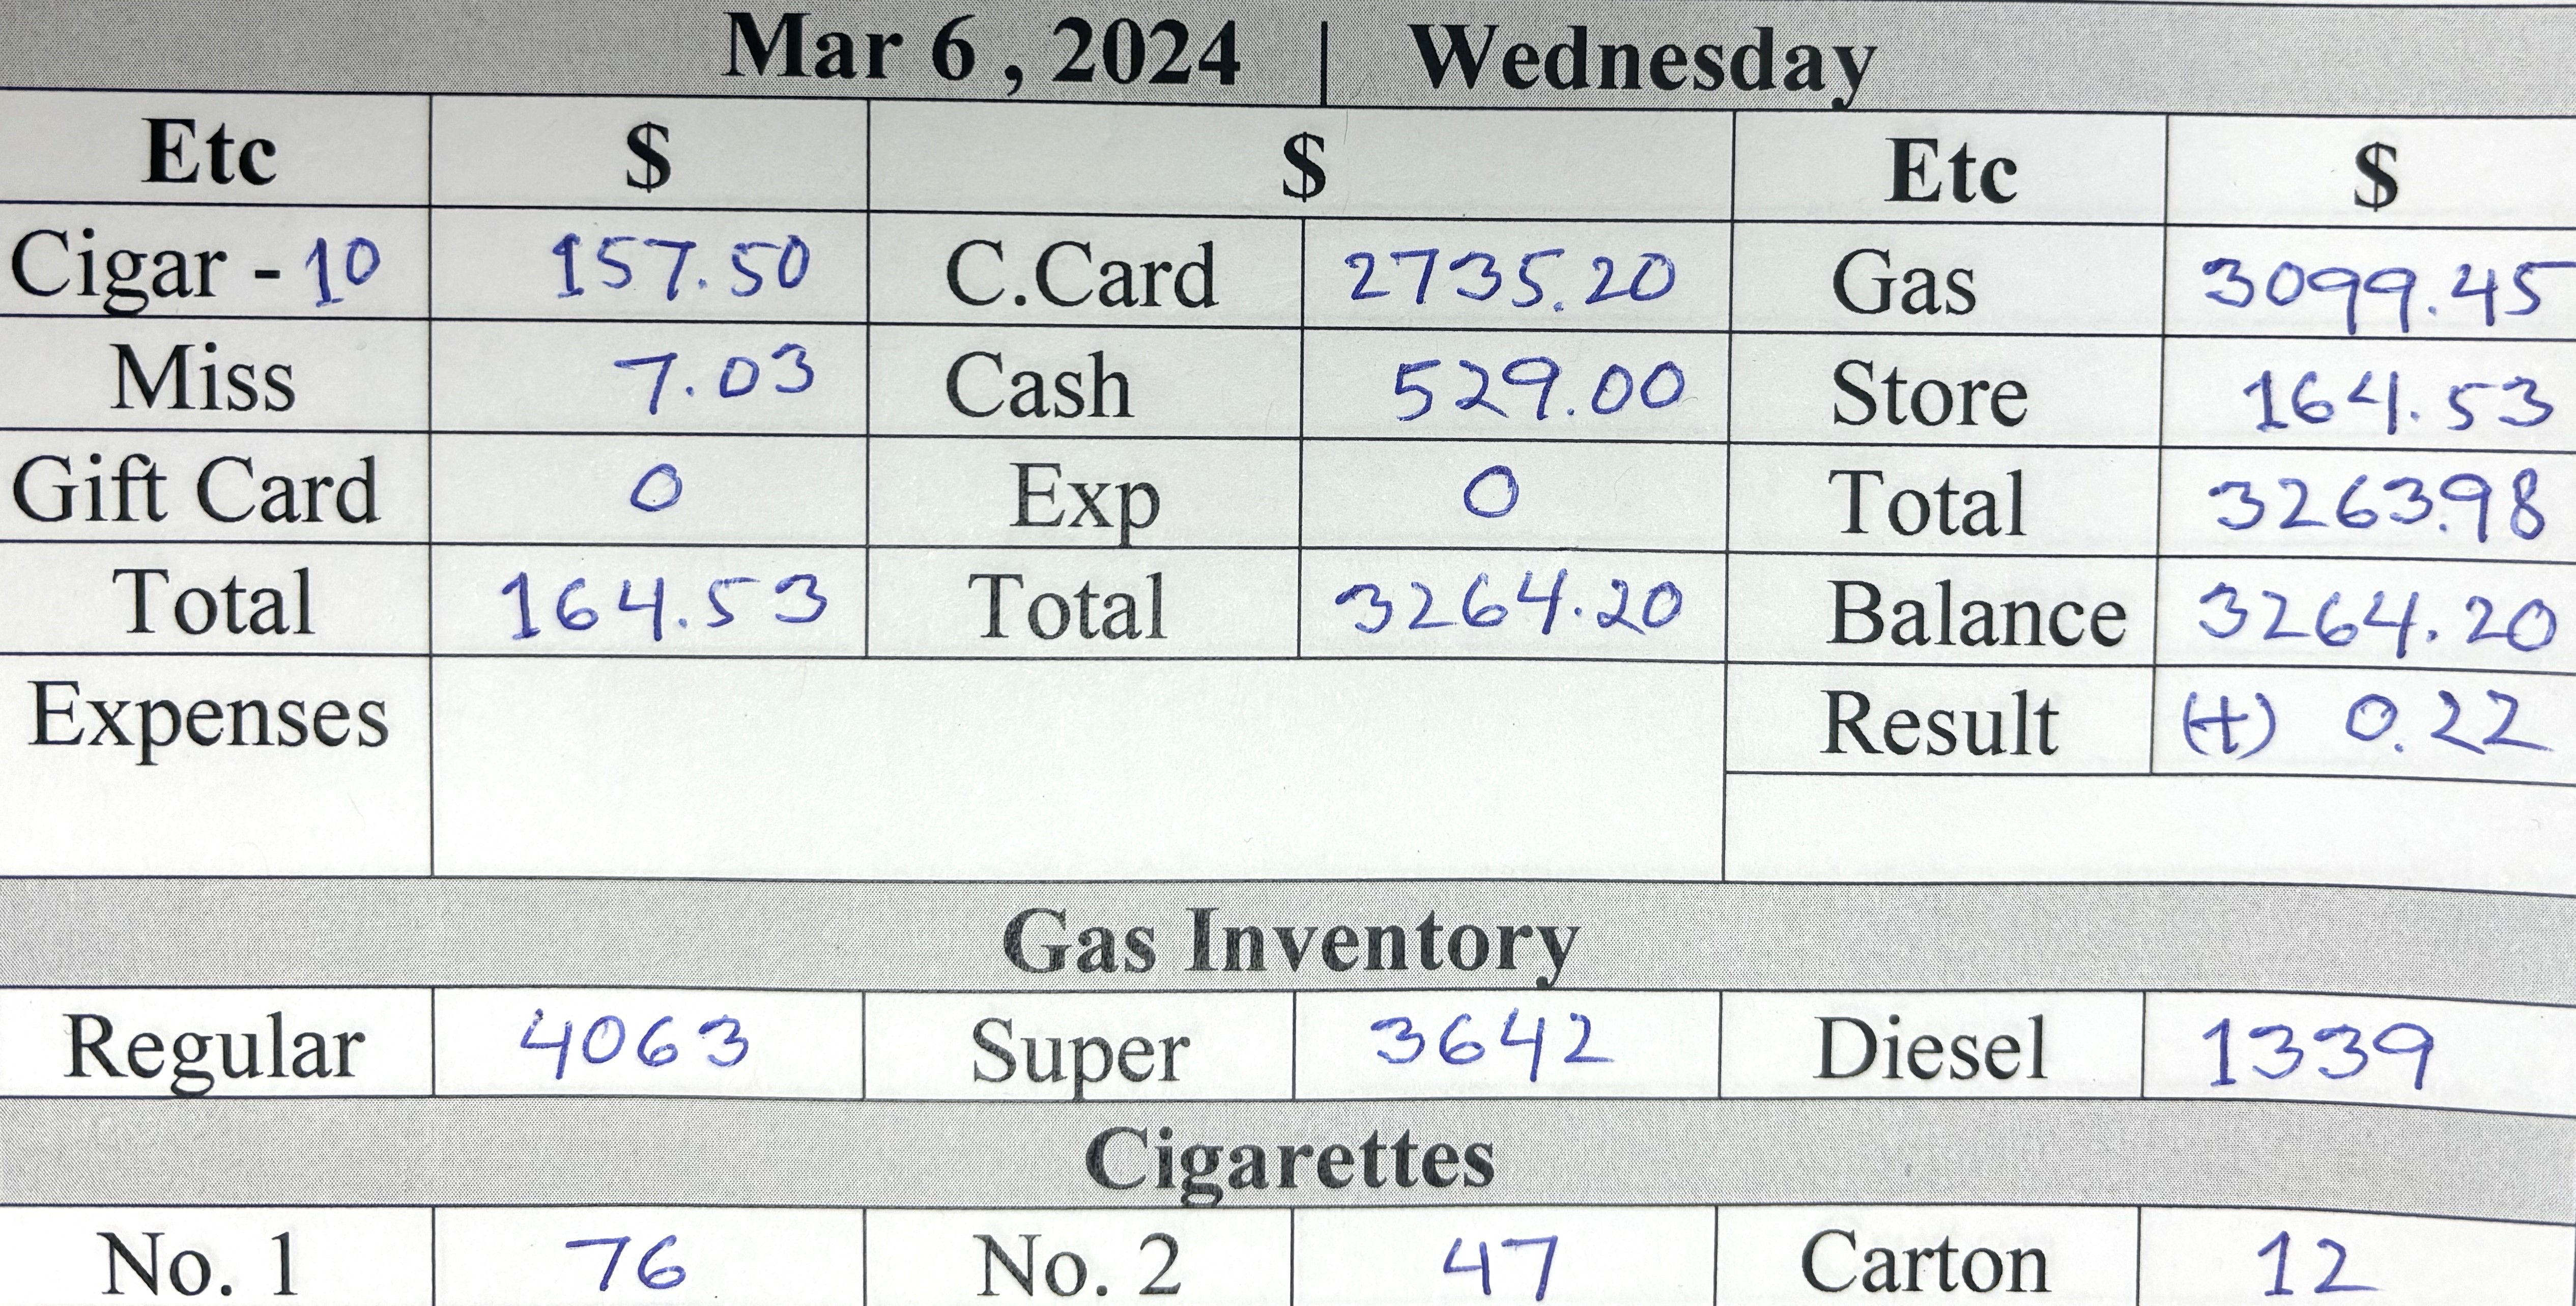 Mar 6 , 2024 | Wednesday
Etc $ $ Etc $
Cigar - 10 157.50 C.Card 2735.20 Gas 3099.45
Miss 7.03 Cash 529.00 Store 164.53
Gift Card 0 Exp 0 Total 3263.98
Total 164.53 Total 3264.20 Balance 3264.20
Expenses Result (+) 0.22
Gas Inventory
Regular 4063 Super 3642 Diesel 1339
Cigarettes
No. 1 76 No. 2 47 Carton 12